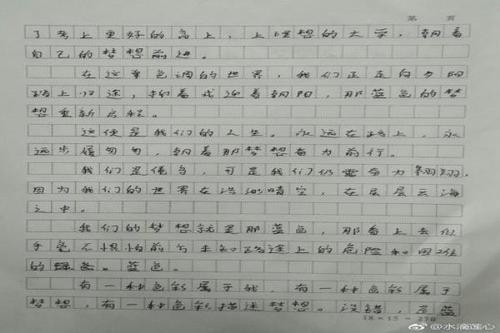 第 页
了考上更好的高上，上理想的大学，朝着
自己的梦想前进。
在这单色调的世界，我们正走向夕阳
踏上归途，抑着或迎着朝阳，那蓝色的梦
想重新启程。
这便是我们的人生。永远在路上，永
远步履匆匆，朝着那梦想奋力前行。
我们是倦鸟，可是我们仍需奋力翱翔。
因为我们的世界在浩渺晴空，在层层云海
之中。
我们的梦想就是那蓝色，那看上去似
乎毫不惧怕前方未知路途上的危险和困难
的 蓝色。
有一种色彩属于我，有一种色彩属于
梦想，有一种色彩描述梦想。没错，是蓝
18×15=270
@水滴莲心